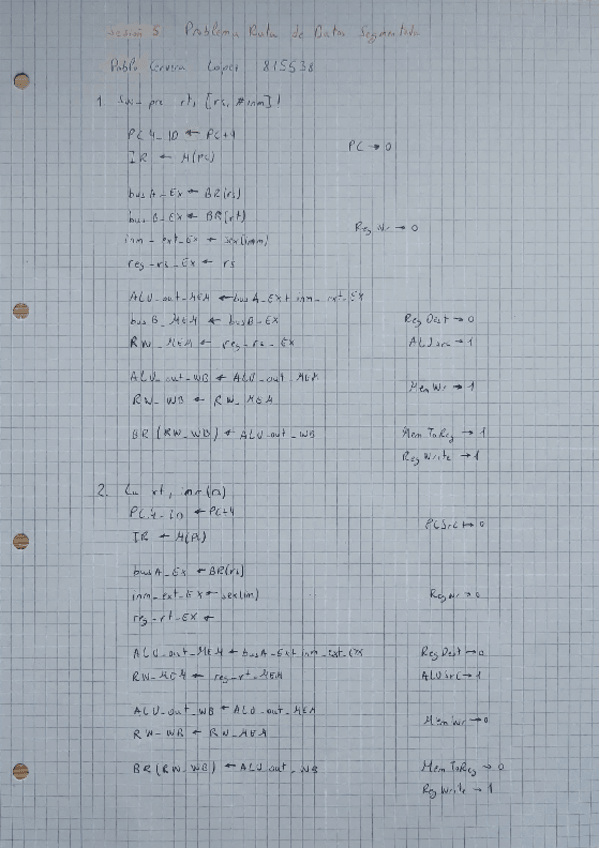 Sesión 5 Problema Ruta de Datos Segmentada
Pablo Cervera López 815538
1. Sw-pre rt, [rs, #inm]!
PC4_ID ← PC+4
PC → 0
IR ← M(PC)
busA_EX ← BR(rs)
busB_EX ← BR(rt)
Reg Wr → 0
inm_ext_EX ← sex(inm)
reg_rs_EX ← rs
ALU_out_MEM ← busA_EX + inm_ext_EX
busB_MEM ← busB_EX
Reg Dest → 0
RW_MEM ← reg_rs_EX
ALUsrc → 1
ALU_out_WB ← ALU_out_MEM
Mem Wr → 1
RW_WB ← RW_MEM
BR(RW_WB) ← ALU_out_WB
Mem ToReg → 1
Reg Write → 1
2. Lw rt, inm(rs)
PC4_ID ← PC+4
PCSrc → 0
IR ← M(PC)
busA_EX ← BR(rs)
inm_ext_EX ← sex(inm)
Reg Wr → 0
reg_rt_EX ←
ALU_out_MEM ← busA_EX + inm_ext_EX
Reg Dest → 0
RW_MEM ← reg_rt_MEM
ALUsrc → 1
ALU_out_WB ← ALU_out_MEM
Mem Wr → 0
RW_WB ← RW_MEM
BR(RW_WB) ← ALU_out_WB
Mem ToReg → 0
Reg Write → 1